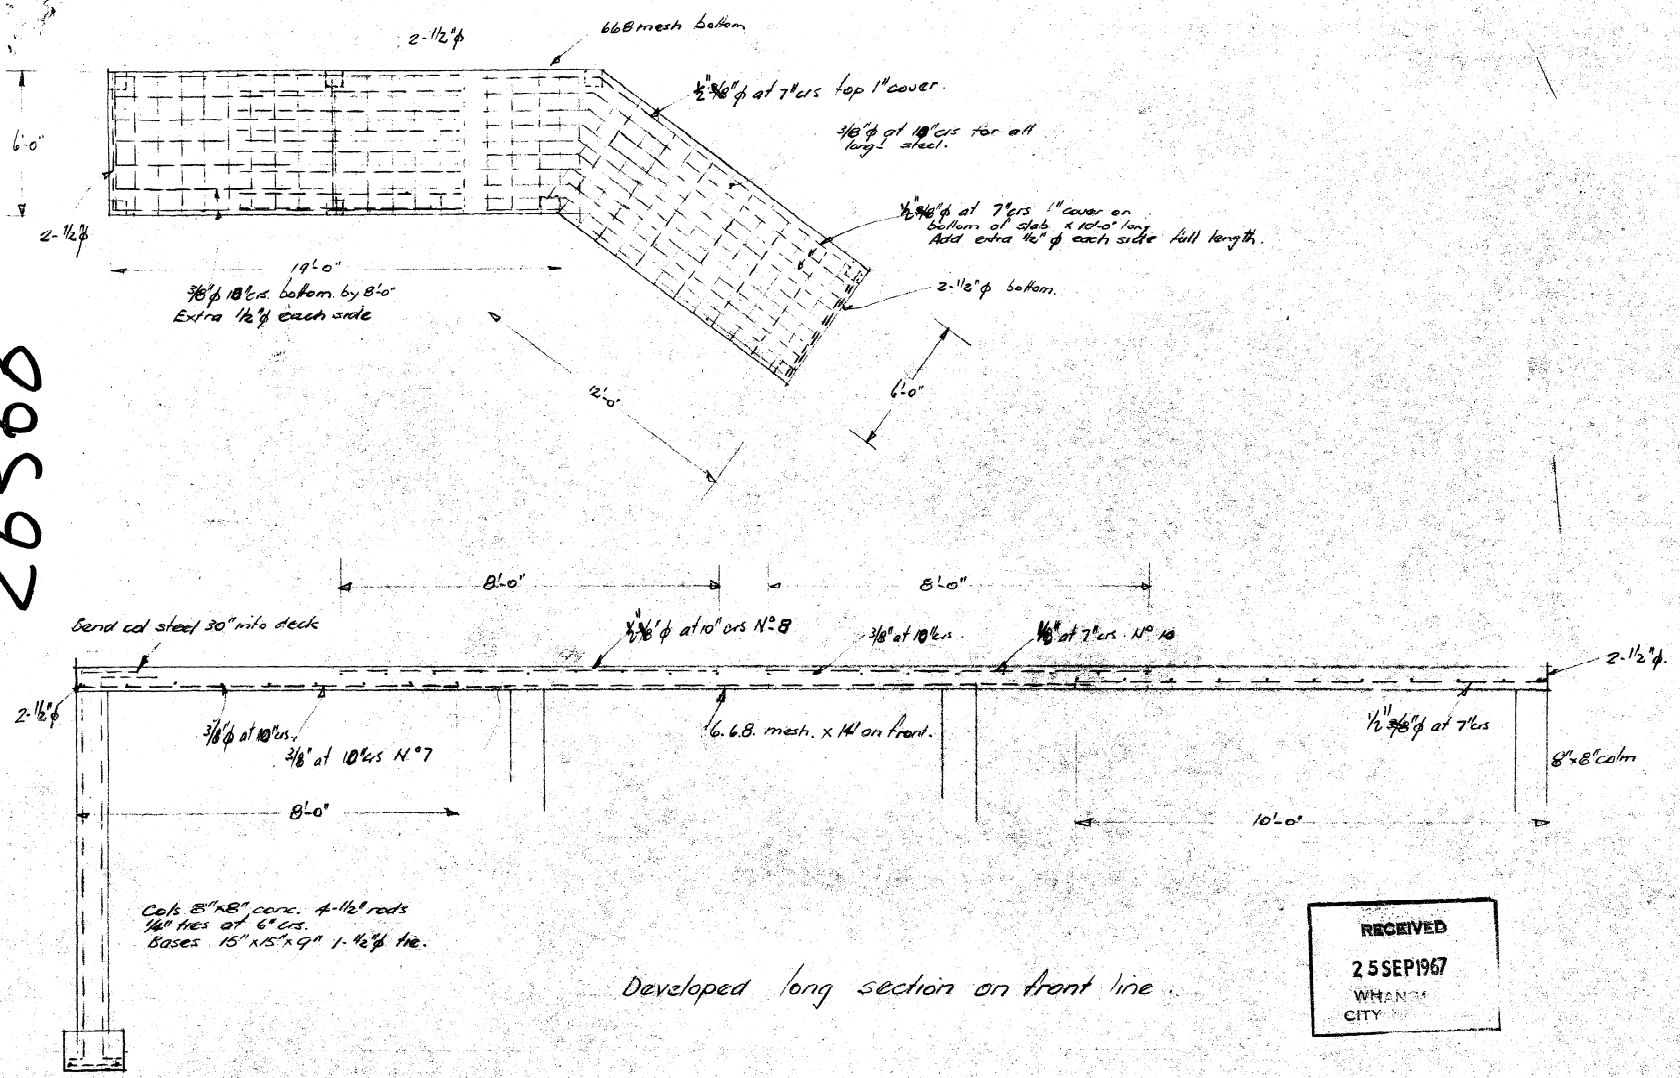 2-1/2"φ
668 mesh bottom
6'-0"
1/2" 3/8"φ at 7"crs top 1"cover.
3/8"φ at 10"crs for all
long! steel.
1/2" 3/8"φ at 7"crs 1"cover on
bottom of slab x 10'-0" long
Add extra 1/2"φ each side full length.
2-1/2"φ
19'-0"
3/8"φ 10"crs. bottom by 8'-0"
Extra 1/2"φ each side
2-1/2"φ bottom.
12'-0"
6'-0"
26366
8'-0"
8'-0"
Bend col steel 30" into deck
1/2" 3/8"φ at 10"crs Nº 8
3/8" at 10"crs.
at 7"crs. Nº 10
2-1/2"φ.
2-1/2"φ
3/8"φ at 10"crs.
3/8" at 10"crs Nº 7
6.6.8. mesh. x 14' on front.
1/2" 3/8"φ at 7"crs
8"x8"colm
8'-0"
10'-0"
Cols 8"x8" conc. 4-1/2" rods
1/4" ties at 6"crs.
Bases 15"x15"x9" 1-1/2"φ tie.
Developed long section on front line.
RECEIVED
25 SEP 1967
CITY